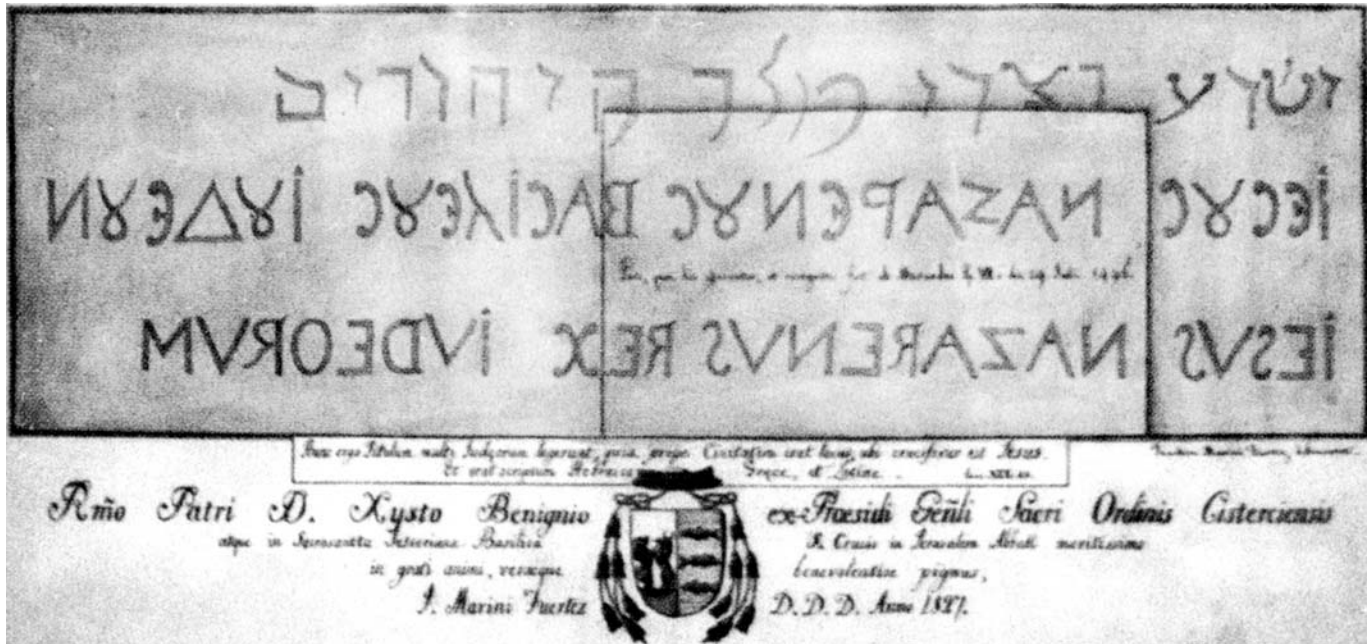 ישוע נצרי מלך היהודים
ΙЄCȣC ΝΑΖΑΡЄΝȣC ΒΑCΙΛЄȣC ΙȣΔЄȣΝ
1496.
IESVS NAZARENVS REX IVDEORVM
Hunc ergo Titulum multi Judæorum legerunt, quia prope Civitatem erat locus, ubi crucifixus est Jesus.
Et erat scriptum Hebraice, Græce, et Latine.
Rm̃o Patri D. Xysto Benignio ex-Præsidi Gen̄li Sacri Ordinis Cisterciensis
atque in Sacrosancta Sessoriana Basilica S. Crucis in Jerusalem Abbati meritissimo
in grati animi, veræque benevolentiæ pignus,
J. Marini Fuertez D.D.D. Anno 1827.